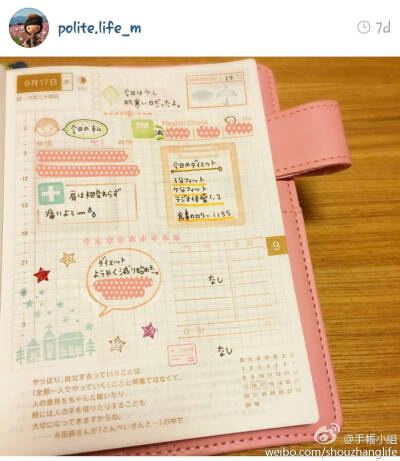 polite.life_m
7d
9月17日
今日は少し
肌寒い日だったよ。
今日の私
Health Check
今日のダイエット
ラジオ体操1,2
食事カロリー1155
肩は相変わらず
痛いよう
ダイエット
ようやく減り始めた。
なし
9
合計
なし
やっぱり、自立するっていうことは
「全部一人でやっていく」ことと同義ではなくて、
人の意見をちゃんと聞いたり、
時には人の手を借りたりすることも
大切になってきますからね。
@手帳小组
weibo.com/shouzhanglife